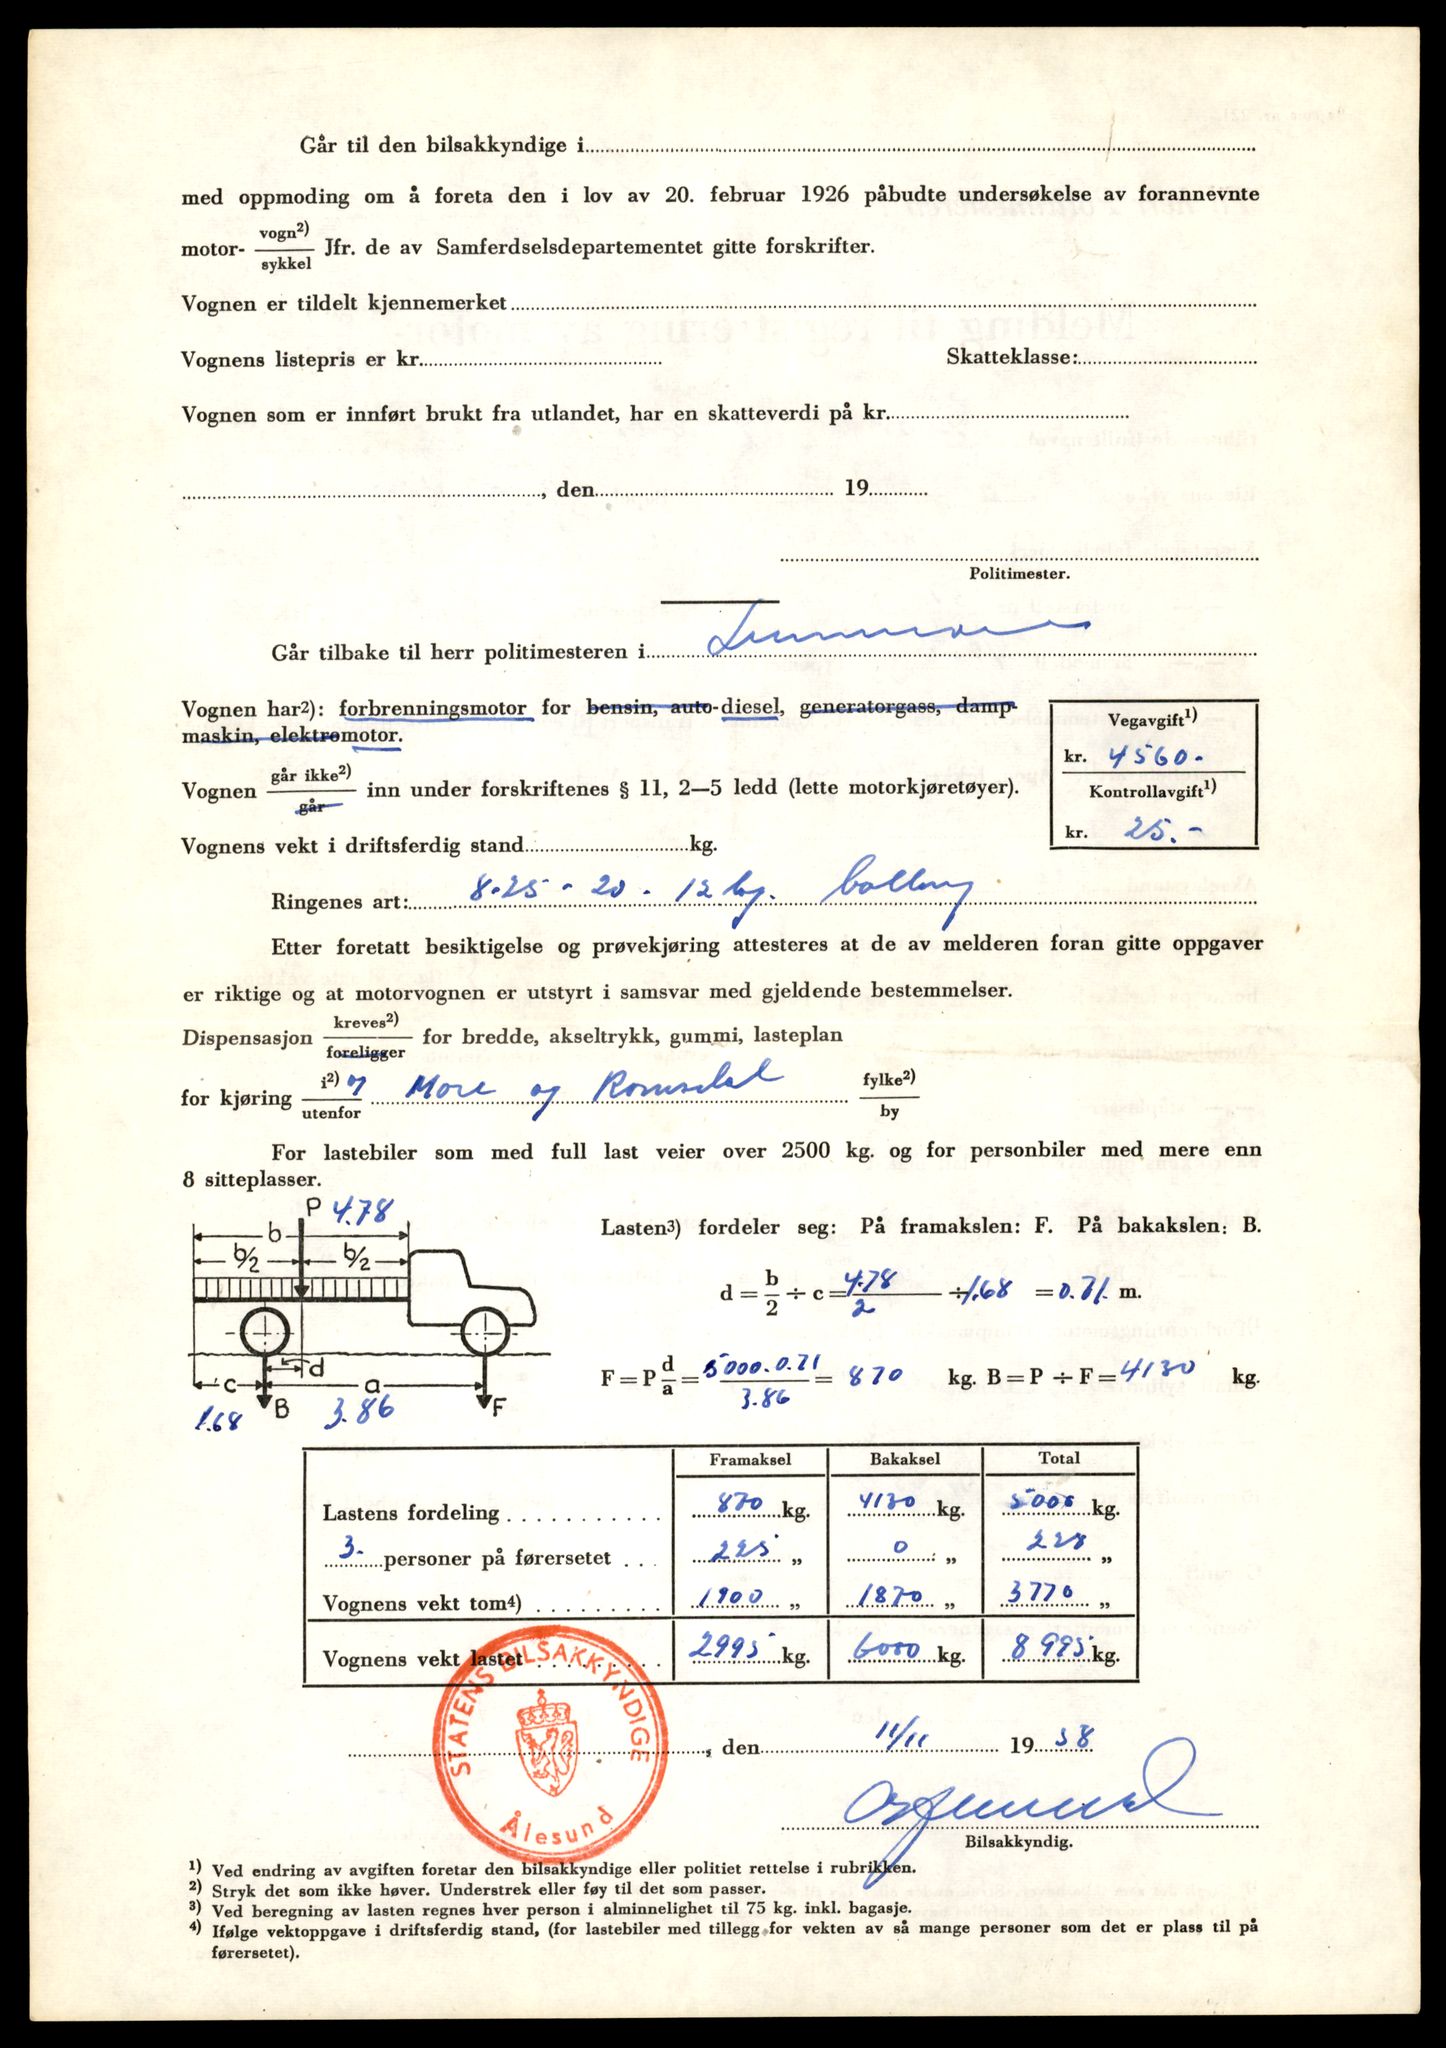 Går til den bilsakkyndige i
med oppmoding om å foreta den i lov av 20. februar 1926 påbudte undersøkelse av forannevnte
motor- vogn2) / sykkel Jfr. de av Samferdselsdepartementet gitte forskrifter.
Vognen er tildelt kjennemerket
Vognens listepris er kr. Skatteklasse:
Vognen som er innført brukt fra utlandet, har en skatteverdi på kr.
, den 19
Politimester.
Går tilbake til herr politimesteren i
Vognen har2): forbrenningsmotor for bensin, auto-diesel, generatorgass, damp-
maskin, elektromotor.
Vegavgift1)
kr. 4560.-
Kontrollavgift1)
kr. 25.-
Vognen går ikke2) / går inn under forskriftenes § 11, 2—5 ledd (lette motorkjøretøyer).
Vognens vekt i driftsferdig stand kg.
Ringenes art: 8-25-20-12 lag.
Etter foretatt besiktigelse og prøvekjøring attesteres at de av melderen foran gitte oppgaver
er riktige og at motorvognen er utstyrt i samsvar med gjeldende bestemmelser.
Dispensasjon kreves2) / foreligger for bredde, akseltrykk, gummi, lasteplan
for kjøring i2) og / utenfor Møre og Romsdal fylke2) / by
For lastebiler som med full last veier over 2500 kg. og for personbiler med mere enn
8 sitteplasser.
P 4.78
b
b/2 b/2
d
c a
B F
1.68 3.86
Lasten3) fordeler seg: På framakslen: F. På bakakslen: B.
d = b/2 ÷ c = 4.78/2 ÷ 1.68 = 0.71 m.
F = P d/a = 5000.0.71/3.86 = 870 kg. B = P ÷ F = 4130 kg.
Framaksel Bakaksel Total
Lastens fordeling 870 kg. 4130 kg. 5000 kg.
3- personer på førersetet 225 „ 0 „ 225 „
Vognens vekt tom4) 1900 „ 1870 „ 3770 „
Vognens vekt lastet 2995 kg. 6000 kg. 8995 kg.
STATENS BILSAKKYNDIGE
Ålesund
, den 11/11 19 58
Bilsakkyndig.
1) Ved endring av avgiften foretar den bilsakkyndige eller politiet rettelse i rubrikken.
2) Stryk det som ikke høver. Understrek eller føy til det som passer.
3) Ved beregning av lasten regnes hver person i alminnelighet til 75 kg. inkl. bagasje.
4) Ifølge vektoppgave i driftsferdig stand, (for lastebiler med tillegg for vekten av så mange personer som det er plass til på
førersetet).